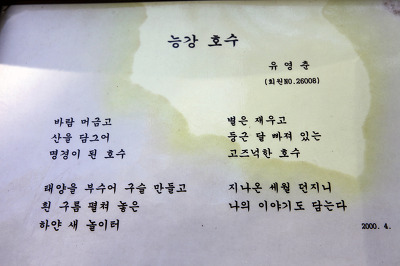 능강 호수
유영춘
(회원NO.26008)
바람 머금고
산을 담그어
명경이 된 호수
태양을 부수어 구슬 만들고
흰 구름 펼쳐 놓은
하얀 새 놀이터
별은 재우고
둥근 달 빠져 있는
고즈넉한 호수
지나온 세월 던지니
나의 이야기도 담는다
2000. 4.